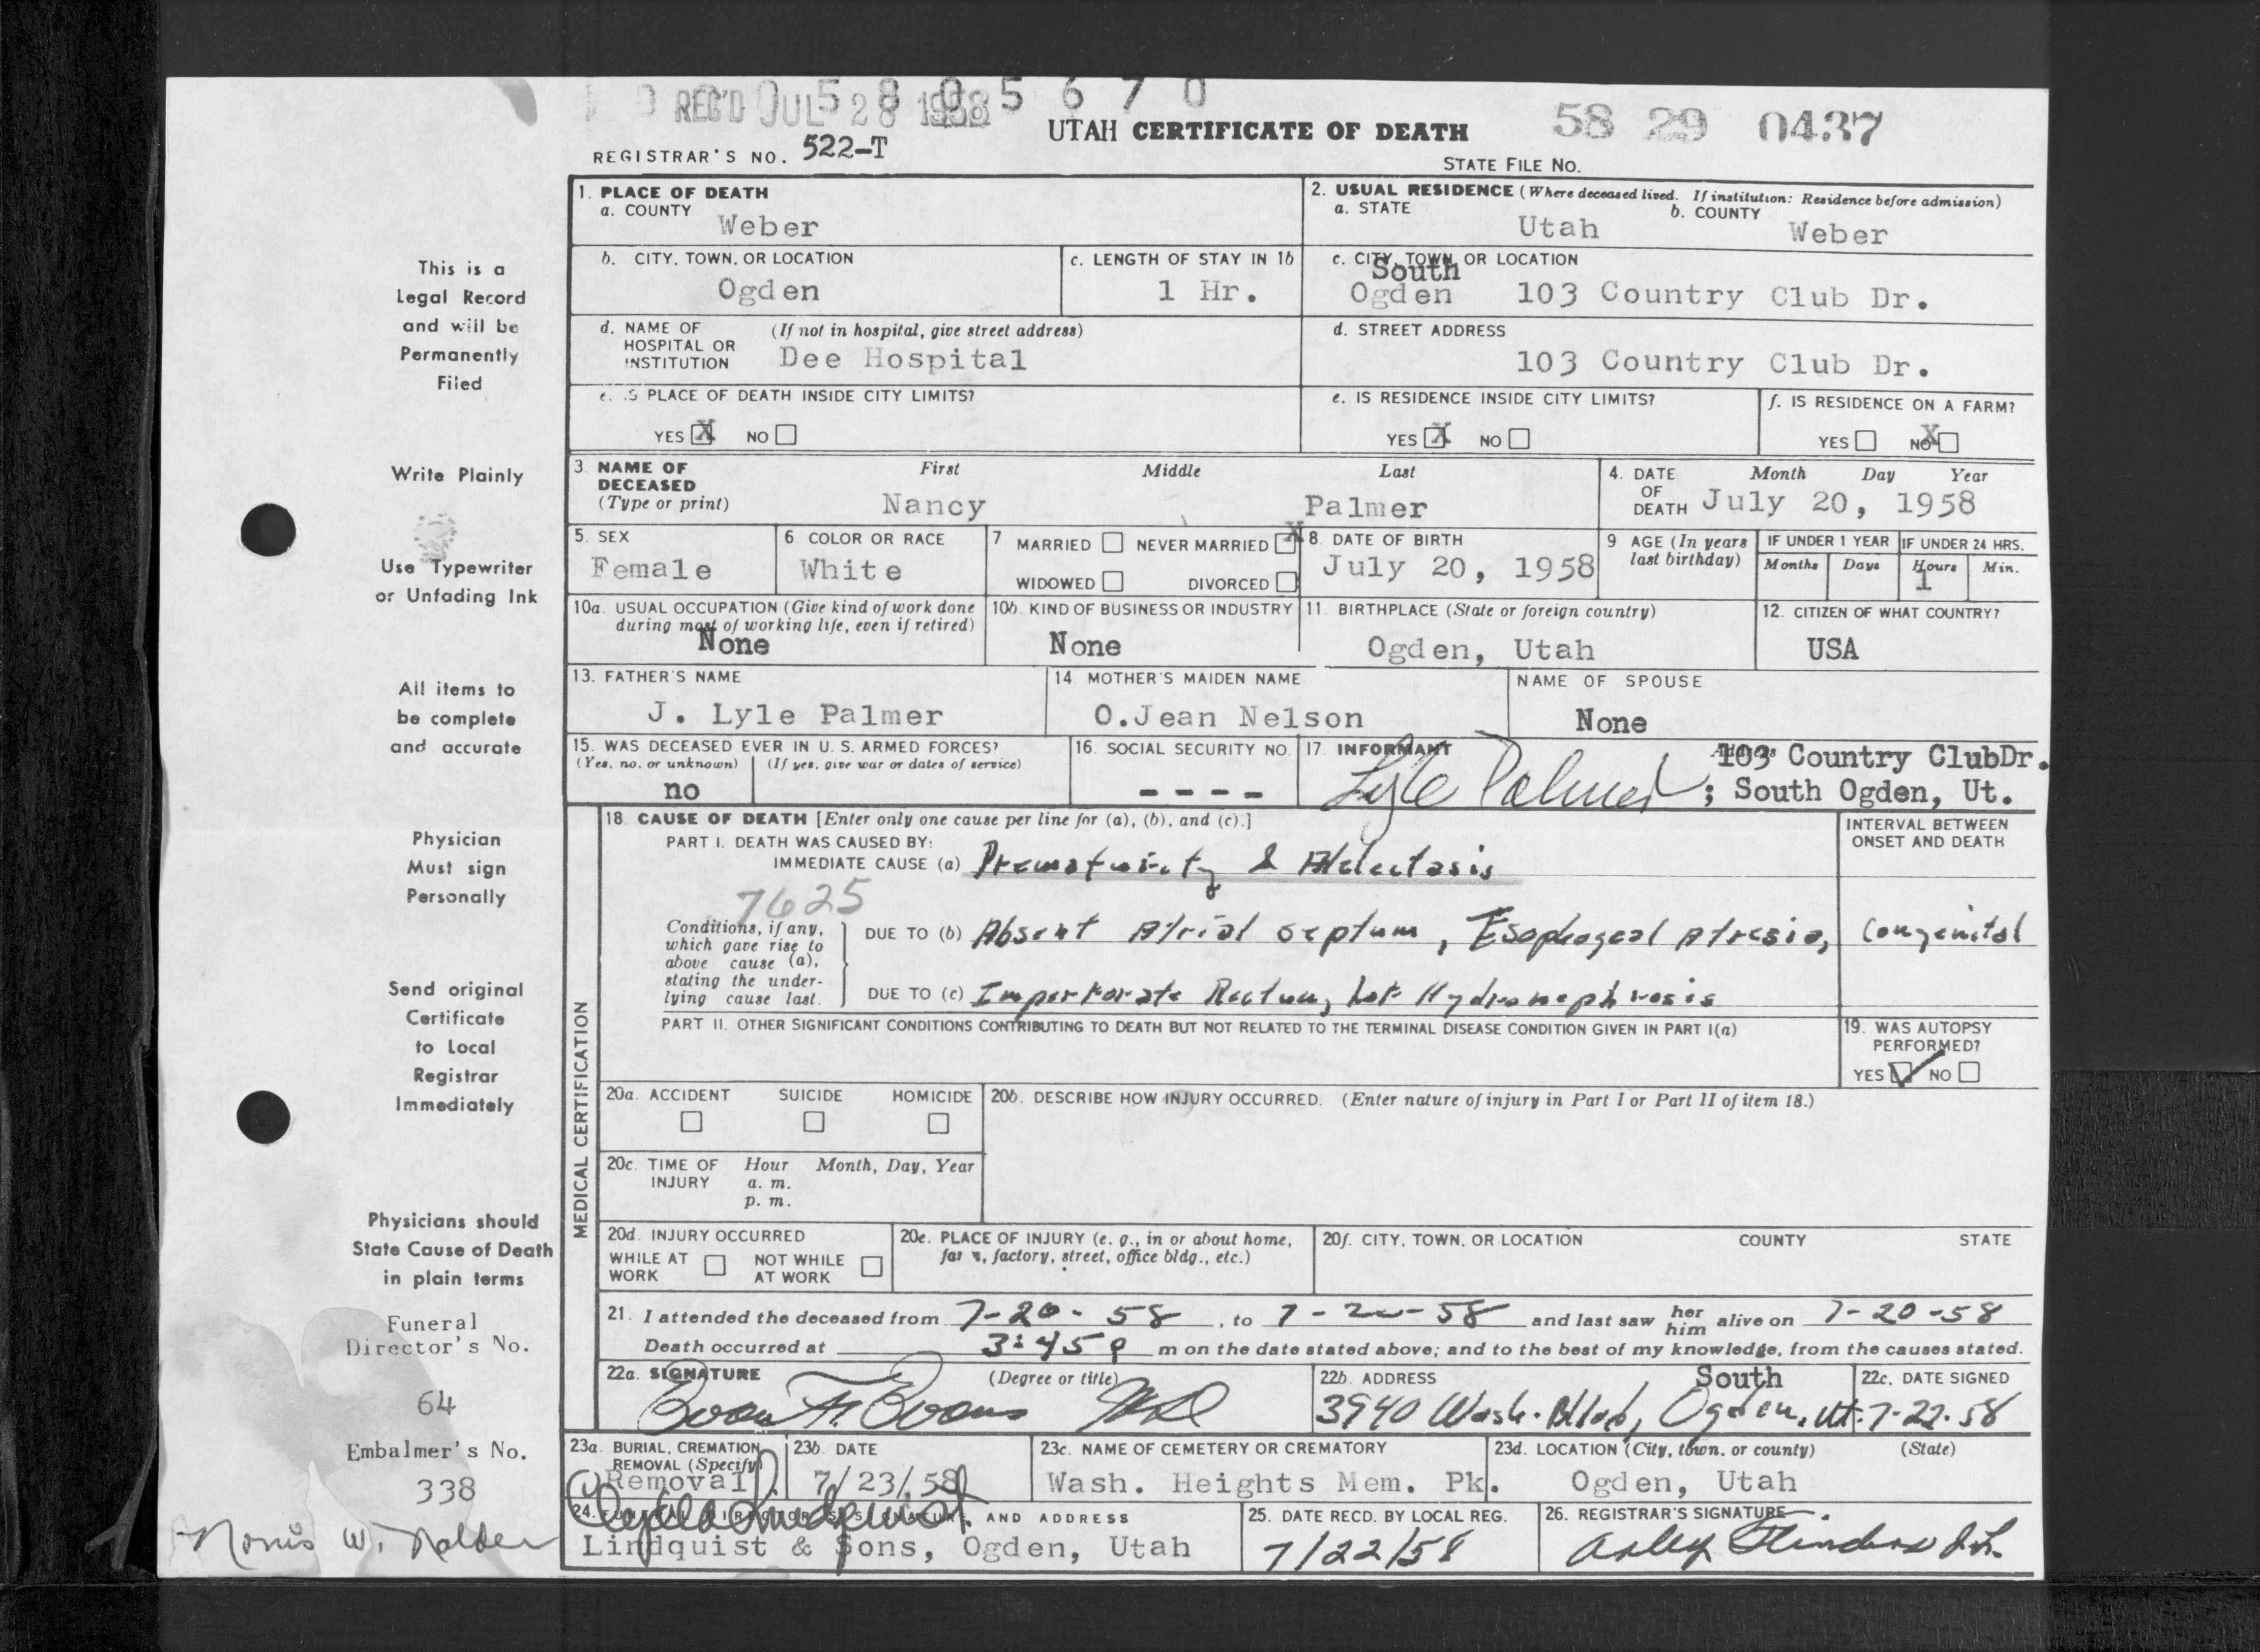 REC'D JUL 28 1958
5 8 0 5 6 7 0
UTAH CERTIFICATE OF DEATH
58 29 0437
REGISTRAR'S NO. 522-T
STATE FILE NO.
1. PLACE OF DEATH
a. COUNTY
Weber
2. USUAL RESIDENCE (Where deceased lived. If institution: Residence before admission)
a. STATE
Utah
b. COUNTY
Weber
b. CITY, TOWN, OR LOCATION
Ogden
c. LENGTH OF STAY IN 1b
1 Hr.
c. CITY, TOWN, OR LOCATION
South
Ogden 103 Country Club Dr.
d. NAME OF HOSPITAL OR INSTITUTION
(If not in hospital, give street address)
Dee Hospital
d. STREET ADDRESS
103 Country Club Dr.
e. IS PLACE OF DEATH INSIDE CITY LIMITS?
YES X NO
e. IS RESIDENCE INSIDE CITY LIMITS?
YES X NO
f. IS RESIDENCE ON A FARM?
YES NO X
3. NAME OF DECEASED
(Type or print)
First Middle Last
Nancy Palmer
4. DATE OF DEATH
Month Day Year
July 20, 1958
5. SEX
Female
6. COLOR OR RACE
White
7 MARRIED NEVER MARRIED X
WIDOWED DIVORCED
8. DATE OF BIRTH
July 20, 1958
9 AGE (In years last birthday)
IF UNDER 1 YEAR
Months Days
IF UNDER 24 HRS.
Hours Min.
1
10a. USUAL OCCUPATION (Give kind of work done during most of working life, even if retired)
None
10b. KIND OF BUSINESS OR INDUSTRY
None
11. BIRTHPLACE (State or foreign country)
Ogden, Utah
12. CITIZEN OF WHAT COUNTRY?
USA
13. FATHER'S NAME
J. Lyle Palmer
14. MOTHER'S MAIDEN NAME
O.Jean Nelson
NAME OF SPOUSE
None
15. WAS DECEASED EVER IN U. S. ARMED FORCES?
(Yes, no, or unknown) (If yes, give war or dates of service)
no
16. SOCIAL SECURITY NO.
- - - -
17. INFORMANT
Lyle Palmer
103 Country ClubDr.
; South Ogden, Ut.
MEDICAL CERTIFICATION
18. CAUSE OF DEATH [Enter only one cause per line for (a), (b), and (c).]
INTERVAL BETWEEN ONSET AND DEATH
PART I. DEATH WAS CAUSED BY:
IMMEDIATE CAUSE (a) Prematurity & Atelectasis
7625
Conditions, if any, which gave rise to above cause (a), stating the underlying cause last.
DUE TO (b) Absent Atrial septum, Esophageal Atresia, Congenital
DUE TO (c) Imperforate Rectum, Left Hydronephrosis
PART II. OTHER SIGNIFICANT CONDITIONS CONTRIBUTING TO DEATH BUT NOT RELATED TO THE TERMINAL DISEASE CONDITION GIVEN IN PART I(a)
19. WAS AUTOPSY PERFORMED?
YES ✓ NO
20a. ACCIDENT SUICIDE HOMICIDE
20b. DESCRIBE HOW INJURY OCCURRED. (Enter nature of injury in Part I or Part II of item 18.)
20c. TIME OF INJURY
Hour Month, Day, Year
a. m.
p. m.
20d. INJURY OCCURRED
WHILE AT WORK
NOT WHILE AT WORK
20e. PLACE OF INJURY (e. g., in or about home, farm, factory, street, office bldg., etc.)
20f. CITY, TOWN, OR LOCATION COUNTY STATE
21. I attended the deceased from 7-20-58, to 7-20-58 and last saw her him alive on 7-20-58
Death occurred at 3:45 p m on the date stated above; and to the best of my knowledge, from the causes stated.
22a. SIGNATURE (Degree or title)
Evan F. Evans MD
22b. ADDRESS
South
3940 Wash. Blvd, Ogden, Ut.
22c. DATE SIGNED
7-22-58
23a. BURIAL, CREMATION, REMOVAL (Specify)
Removal
23b. DATE
7/23/58
23c. NAME OF CEMETERY OR CREMATORY
Wash. Heights Mem. Pk.
23d. LOCATION (City, town, or county) (State)
Ogden, Utah
24. FUNERAL DIRECTOR'S SIGNATURE AND ADDRESS
Lindquist & Sons, Ogden, Utah
25. DATE RECD. BY LOCAL REG.
7/22/58
26. REGISTRAR'S SIGNATURE
This is a
Legal Record
and will be
Permanently
Filed
Write Plainly
Use Typewriter
or Unfading Ink
All items to
be complete
and accurate
Physician
Must sign
Personally
Send original
Certificate
to Local
Registrar
Immediately
Physicians should
State Cause of Death
in plain terms
Funeral
Director's No.
64
Embalmer's No.
338
Norris W. Nalder